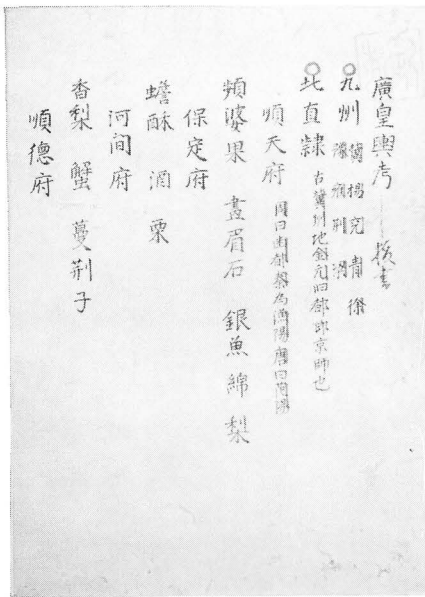 廣皇輿考 抜書
九州 冀揚兗青徐
豫雍荊梁
北直隷 古冀州地金元旧都即京師也
順天府 周曰幽都秦為漁陽唐曰范陽
頻婆果 畫眉石 銀魚 綿梨
保定府
蟾酥 酒 栗
河间府
香梨 蟹 蔓荊子
順德府